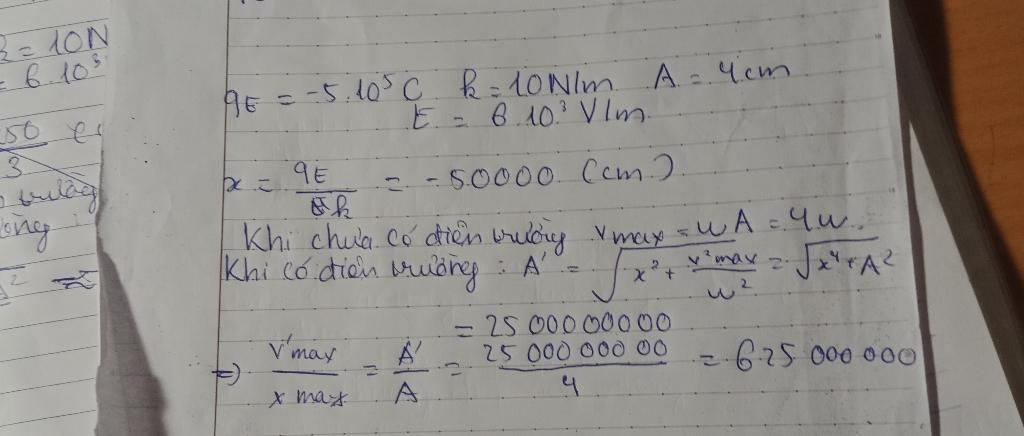 R = 10N
= 6 10³
50
3
qE = -5.10⁵ C k = 10N/m A = 4cm
E = 6.10³ V/m
x = qE/k = -50000 (cm)
Khi chưa có điện trường vmax = wA = 4w.
Khi có điện trường : A' = √(x² + v²max/w²) = √(x⁴ + A²)
= 2500000000
=> v'max/x max = A'/A = 2500000000/4 = 625 000 000